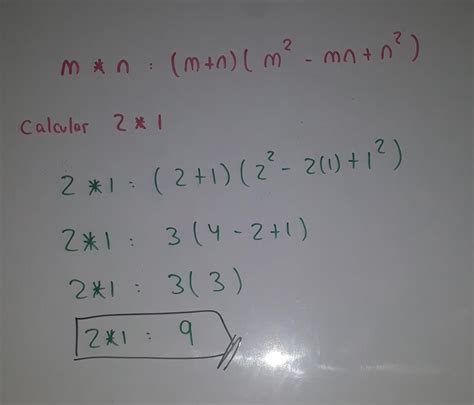 m * n : (m+n)(m² - mn + n²)
Calcular 2 * 1
2 * 1 : (2+1)(2² - 2(1) + 1²)
2 * 1 : 3(4 - 2 + 1)
2 * 1 : 3(3)
2 * 1 : 9